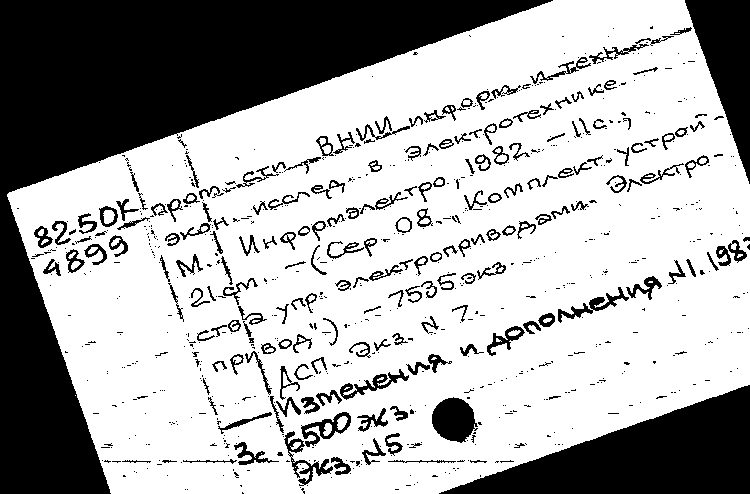 82-50К пром-сти, ВНИИ информ. и техн.-
4899 экон. исслед. в электротехнике. —
М.: Информэлектро, 1982. — 11с.;
21см. — (Сер. 08. „Комплект. устрой-
ства упр. электроприводами. Электро-
привод"). — 7535 экз.
ДСП. Экз. N 7.
Изменения и дополнения N1. 1983
3с. 6500 экз.
Экз. N5